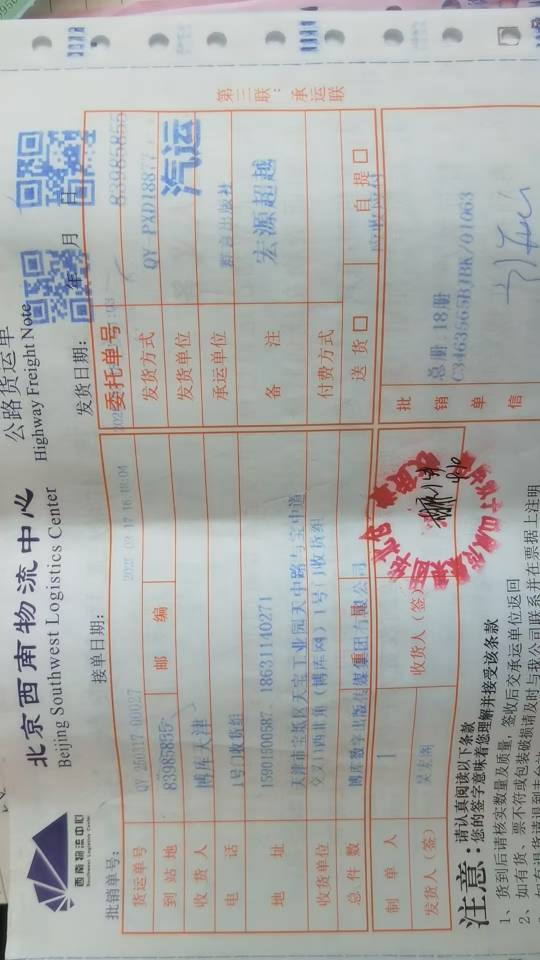 西南物流中心
Southwest Logistics Center
北京西南物流中心
Beijing Southwest Logistics Center
公路货运单
Highway Freight Note
批销单号：
接单日期：
发货日期： 年 月 日
货运单号
委托单号
83985855
到站地
83985855
邮编
发货方式
QY-PXD18877
收货人
博库天津
发货单位
汽运
电话
1号门收货组
承运单位
地址
15901500587、18631140271
备注
宏源超越
收货单位
天津市宝坻区天宝工业园天中路与宝中道
交叉口西北角（博库网）1号门收货组
付费方式
总件数
博库数字出版传媒集团有限公司
重量
送货 □
自提 □
制单人
1
收货人（签）
批销单信
总册：18册
发货人（签）
第三联：承运联
注意：
请认真阅读以下条款
您的签字意味着您理解并接受该条款
1、货到后请核实数量及质量，签收后交承运单位返回
2、如有货、票不符或包装破损请及时与我公司联系并在票据上注明